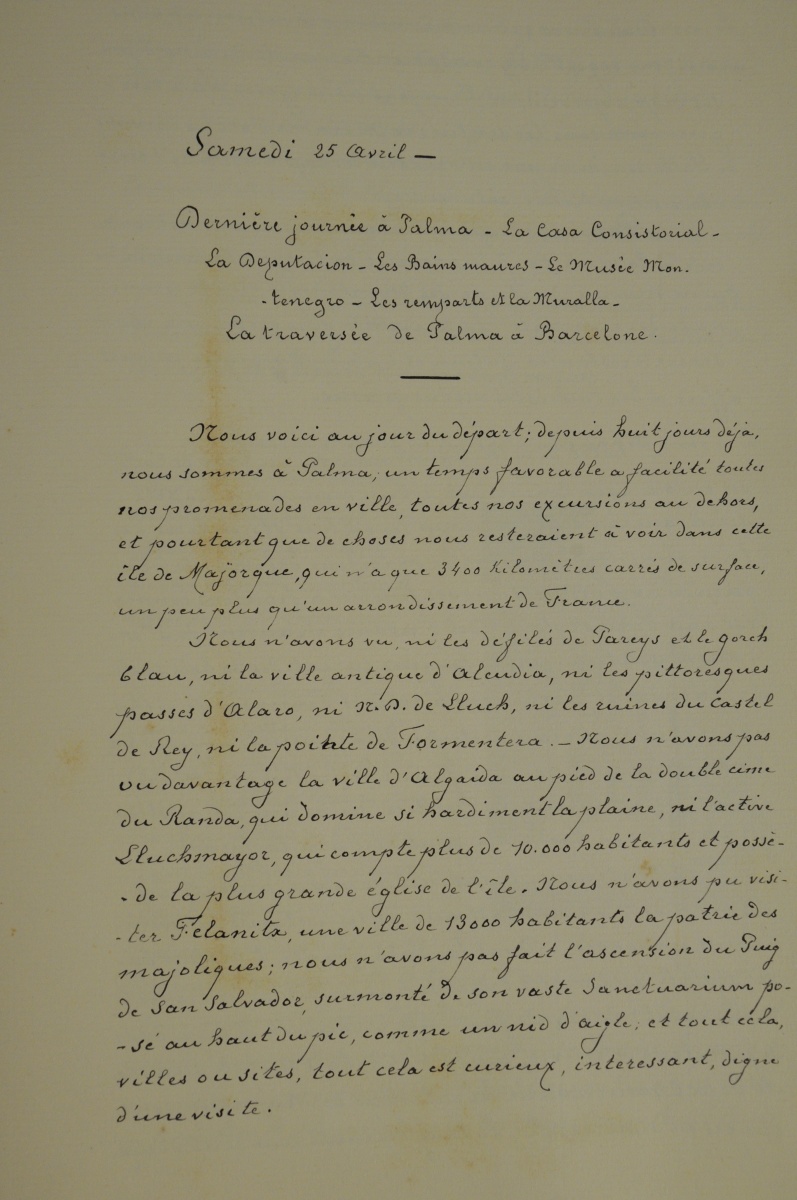 Samedi 25 Avril —
Dernière journée à Palma - La Casa Consistorial -
La Deputacion - Les Bains maures - Le Musée Mon-
-tenegro - Les remparts et la Muralla -
La traversée de Palma à Barcelone.
Nous voici au jour du départ; depuis huit jours déjà,
nous sommes à Palma, un temps favorable a facilité toutes
nos promenades en ville, toutes nos excursions au dehors,
et pourtant que de choses nous resteraient à voir dans cette
île de Majorque, qui n'a que 3400 Kilomètres carrés de surface,
un peu plus qu'un arrondissement de France.
Nous n'avons vu, ni les défilés de Pareys et le gorch
blau, ni la ville antique d'Alcudia, ni les pittoresques
passes d'Alaro, ni N.D. de Lluch, ni les ruines du Castel
de Rey, ni la pointe de Formentera. — Nous n'avons pas
vu davantage la ville d'Algaida au pied de la double cime
du Randa, qui domine si hardiment la plaine, ni l'active
Lluchmayor, qui compte plus de 10.000 habitants et possè-
-de la plus grande église de l'île. Nous n'avons pu visi-
-ter Felanitx, une ville de 13000 habitants la patrie des
majoliques; nous n'avons pas fait l'ascension du Puig
de San Salvador, surmonté de son vaste Sanctuarium po-
-sé au haut du pic, comme un nid d'aigle; et tout cela,
villes ou sites, tout cela est curieux, interessant, digne
d'une visite.